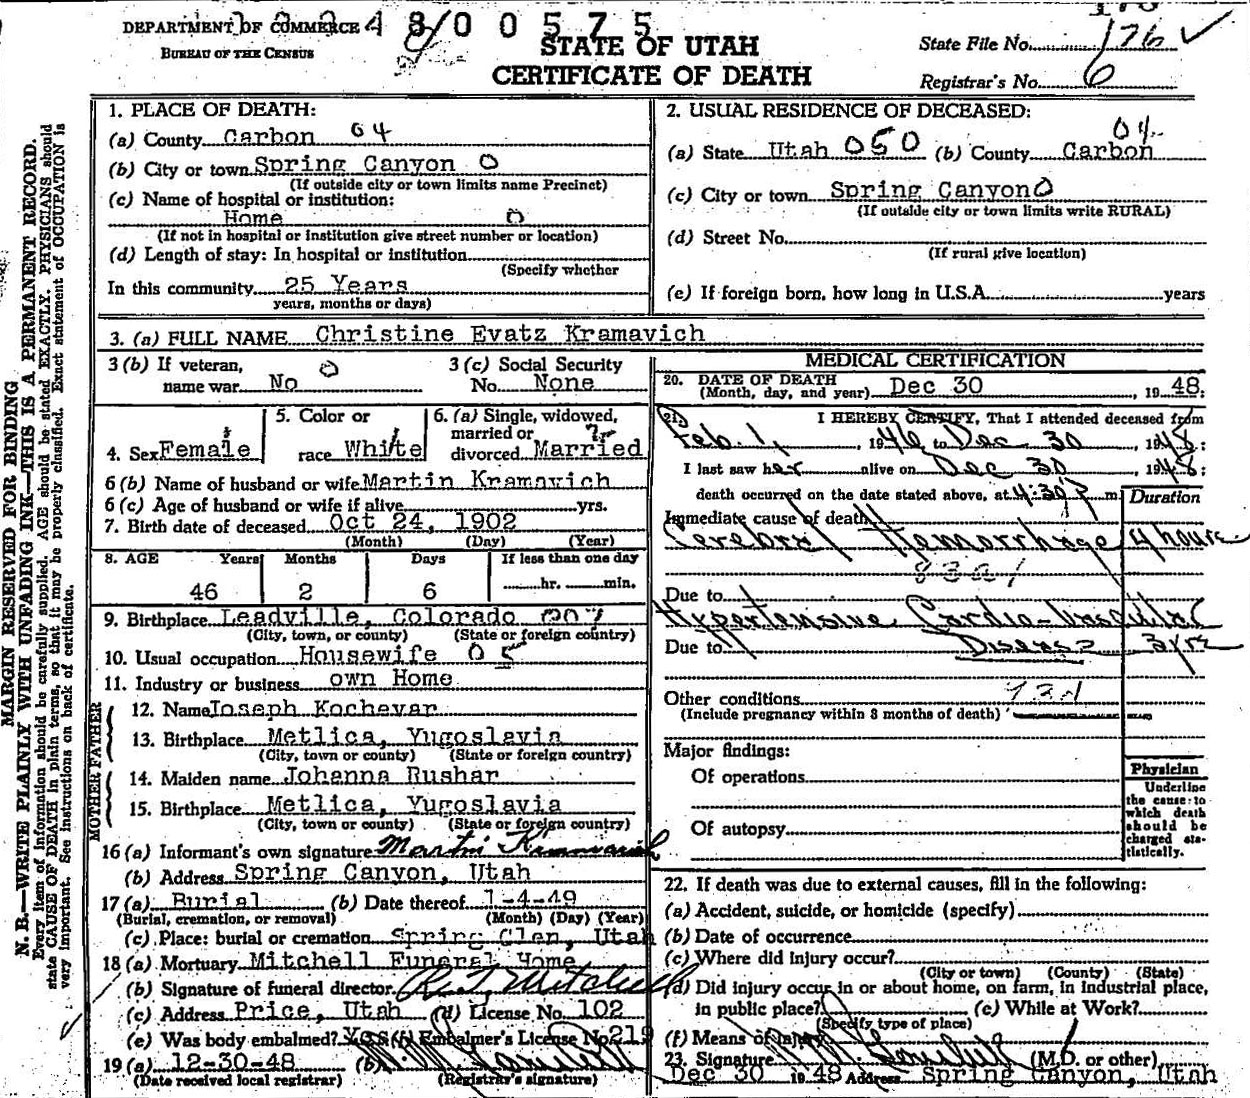 DEPARTMENT OF COMMERCE 48 00575
BUREAU OF THE CENSUS
STATE OF UTAH
CERTIFICATE OF DEATH
State File No. 176
Registrar's No. 6
MARGIN RESERVED FOR BINDING
N. B.—WRITE PLAINLY WITH UNFADING INK—THIS IS A PERMANENT RECORD.
Every item of information should be carefully supplied. AGE should be stated EXACTLY. PHYSICIANS should
state CAUSE OF DEATH in plain terms, so that it may be properly classified. Exact statement of OCCUPATION is
very important. See instructions on back of certificate.
1. PLACE OF DEATH:
(a) County Carbon 04
(b) City or town Spring Canyon 0
(If outside city or town limits name Precinct)
(c) Name of hospital or institution:
Home 0
(If not in hospital or institution give street number or location)
(d) Length of stay: In hospital or institution
(Specify whether
In this community 25 Years
years, months or days)
2. USUAL RESIDENCE OF DECEASED:
04
(a) State Utah 050 (b) County Carbon
(c) City or town Spring Canyon 0
(If outside city or town limits write RURAL)
(d) Street No.
(If rural give location)
(e) If foreign born, how long in U.S.A. years
3. (a) FULL NAME Christine Evatz Kramavich
3 (b) If veteran, 0
name war No
3 (c) Social Security
No. None
4. Sex Female
5. Color or
race White
6. (a) Single, widowed,
married or
divorced Married
6 (b) Name of husband or wife Martin Kramavich
6 (c) Age of husband or wife if alive yrs.
7. Birth date of deceased Oct 24, 1902
(Month) (Day) (Year)
8. AGE Years Months Days If less than one day
46 2 6 hr. min.
9. Birthplace Leadville, Colorado 007
(City, town, or county) (State or foreign country)
10. Usual occupation Housewife 05
11. Industry or business own Home
FATHER
12. Name Joseph Kochevar
13. Birthplace Metlica, Yugoslavia
(City, town or county) (State or foreign country)
MOTHER
14. Maiden name Johanna Rushar
15. Birthplace Metlica, Yugoslavia
(City, town or county) (State or foreign country)
16 (a) Informant's own signature Martin Kramavich
(b) Address Spring Canyon, Utah
17 (a) Burial (b) Date thereof 1-4-49
(Burial, cremation, or removal) (Month) (Day) (Year)
(c) Place: burial or cremation Spring Glen, Utah
18 (a) Mortuary Mitchell Funeral Home
(b) Signature of funeral director Mitchell
(c) Address Price, Utah (d) License No. 102
(e) Was body embalmed? Yes (f) Embalmer's License No. 219
19 (a) 12-30-48 (b)
(Date received local registrar) (Registrar's signature)
MEDICAL CERTIFICATION
20. DATE OF DEATH
(Month, day, and year) Dec 30, 1948
21. I HEREBY CERTIFY, That I attended deceased from
Feb. 1, 1946 to Dec 30, 1948;
I last saw her alive on Dec 30, 1948;
death occurred on the date stated above, at 4:30 P m.
Duration
Immediate cause of death
Cerebral Hemorrhage 4 hours
Due to
Hypertensive Cardio-Vascular
Due to Disease 3 yrs
Other conditions
(Include pregnancy within 3 months of death)
Major findings:
Of operations
Of autopsy
Physician
Underline
the cause to
which death
should be
charged sta-
tistically.
22. If death was due to external causes, fill in the following:
(a) Accident, suicide, or homicide (specify)
(b) Date of occurrence
(c) Where did injury occur?
(City or town) (County) (State)
(d) Did injury occur in or about home, on farm, in industrial place,
in public place? (e) While at Work?
(Specify type of place)
(f) Means of injury
23. Signature (M.D. or other)
Dec 30 1948 Address Spring Canyon, Utah